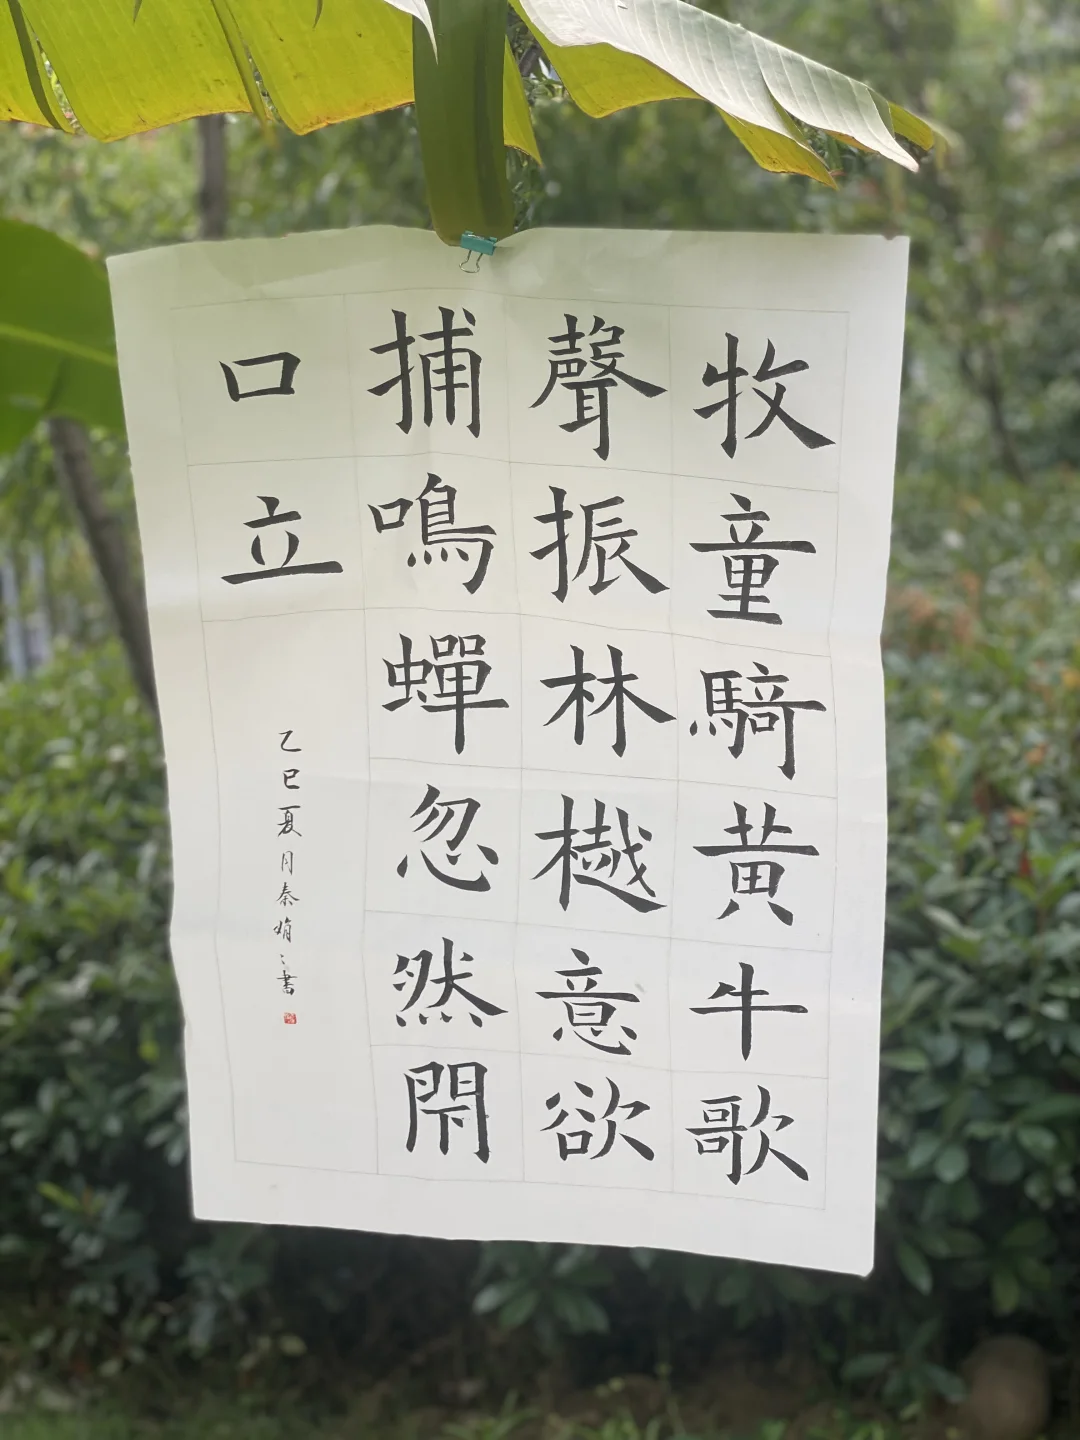 牧童騎黃牛歌
聲振林樾意欲
捕鳴蟬忽然閇
口立
乙巳夏月秦娟〻書